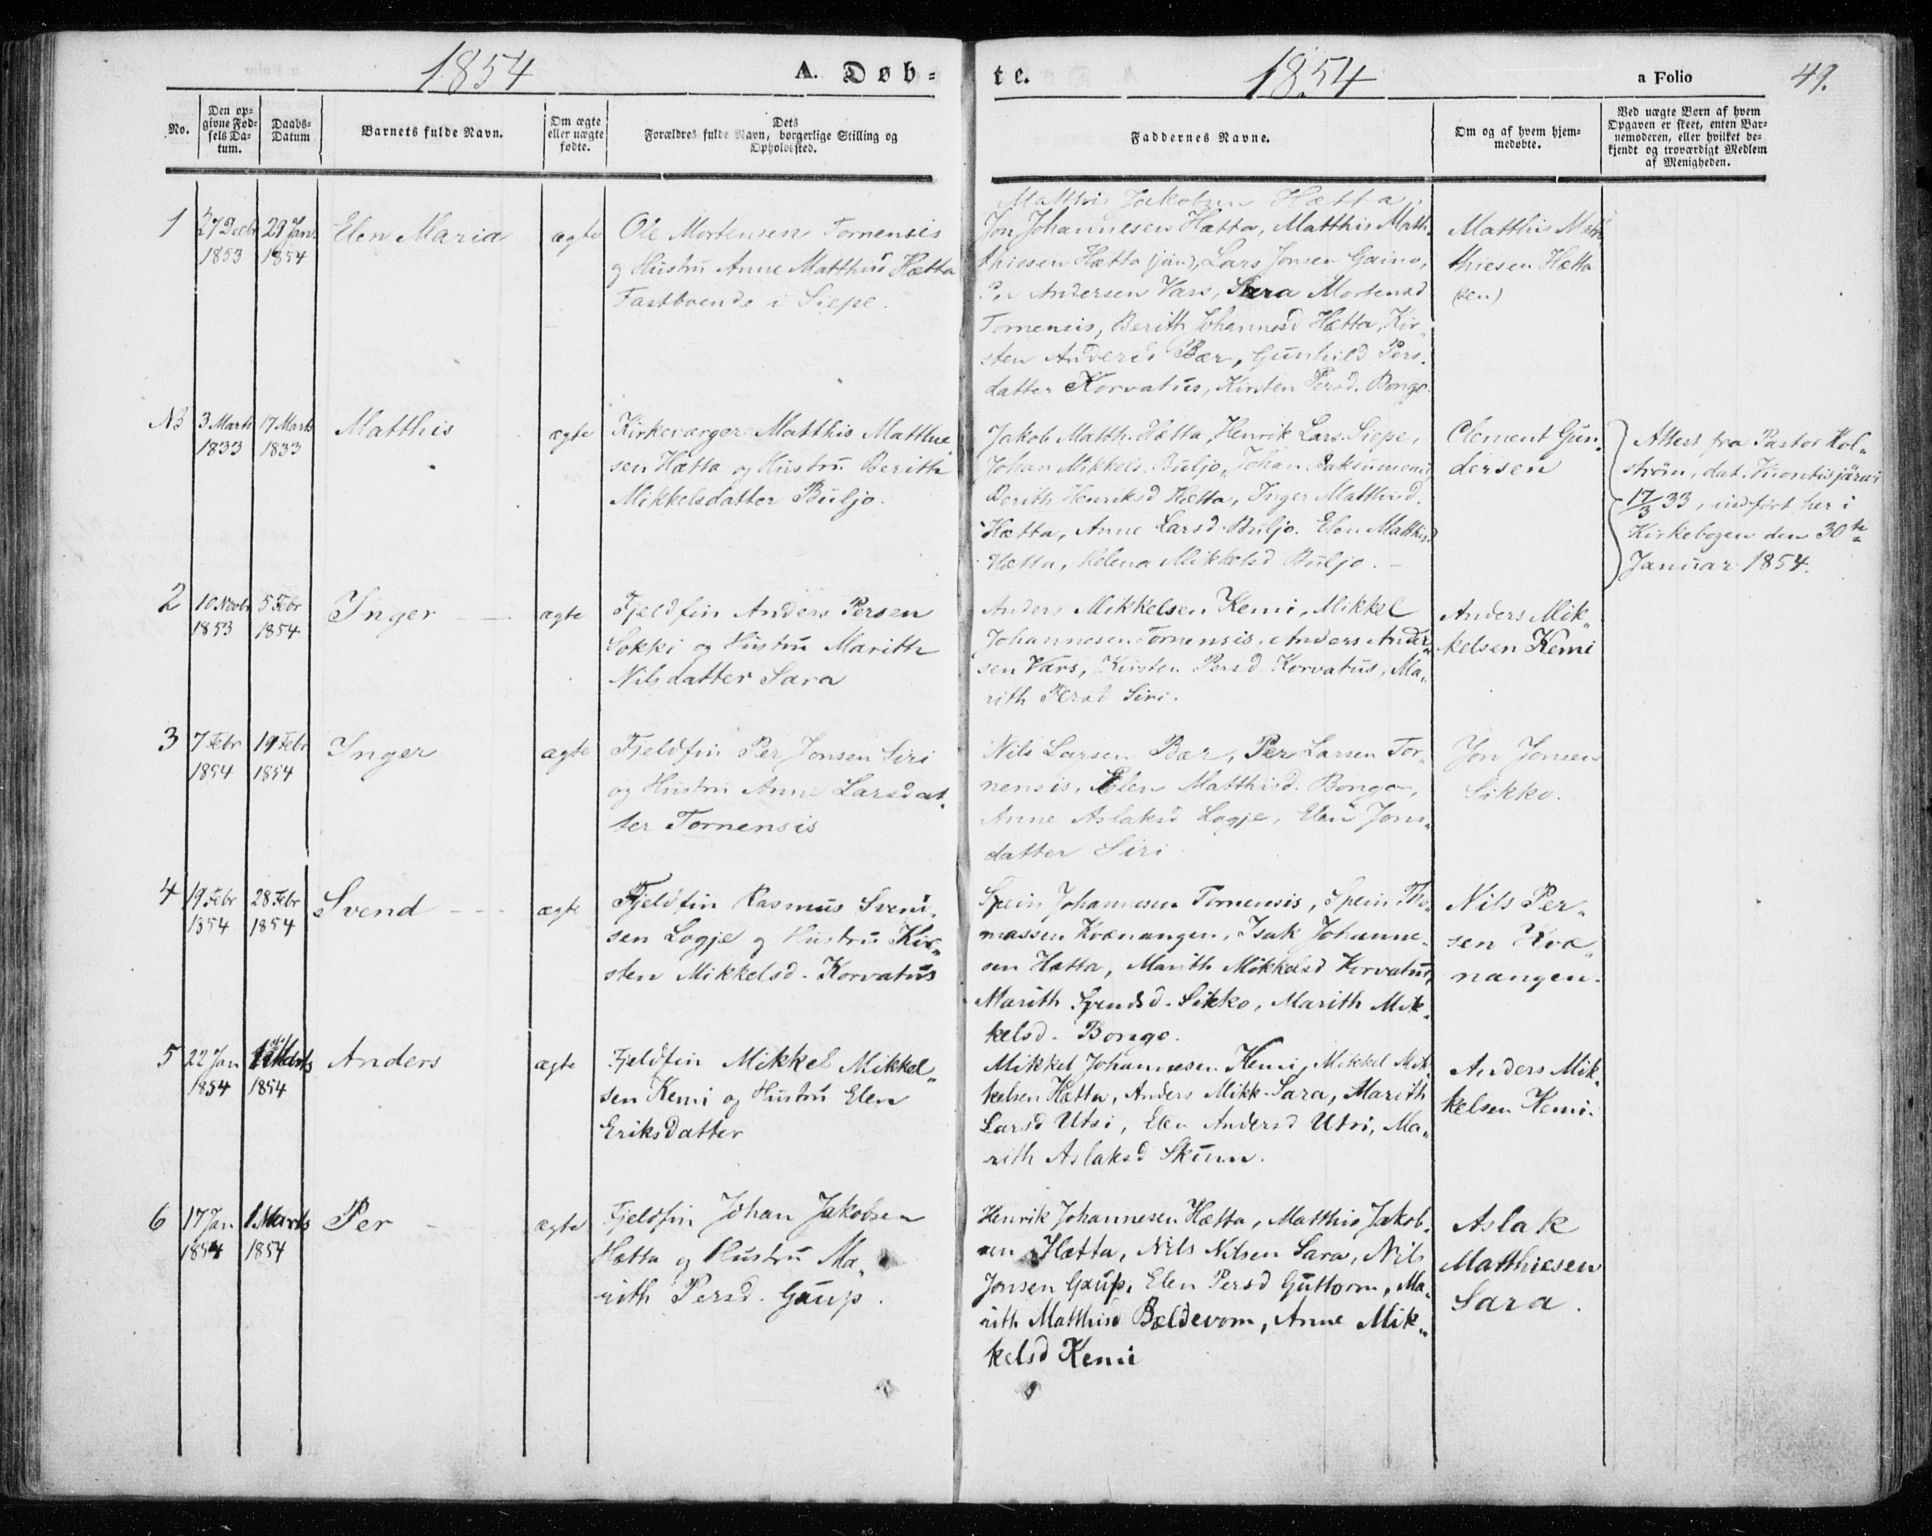 1854 A. Døb-
te. 1854 a Folio 49.
No.
Den op-
givne Fød-
sels Da-
tum.
Daabs-
Datum
Barnets fulde Navn.
Om ægte
eller uægte
fødte.
Dets
Forældres fulde Navn, borgerlige Stilling og
Opholdssted.
Faddernes Navne.
Om og af hvem hjem-
medøbte.
Ved uægte Børn af hvem
Opgaven er skeet, enten Bar-
nemoderen, eller hvilket be-
kjendt og troværdigt Medlem
af Menigheden.
1
27 Decbr
1853
29 Jan.
1854
Elen Maria
ægte
Ole Mortensen Tornensis
og Hustru Anne Matthisd Hætta
Fastboende i Siepe.
Matthis Jakobsen Hætta,
Jon Johannesen Hætta, Matthis Mat-
thiesen Hætta (jun), Lars Jonsen Gaino,
Per Andersen Vars, Sara Mortensd
Tornensis, Berith Johannesd Hætta, Kir-
sten Andersd Bær, Gunhild Pers-
datter Korvatus, Kirsten Persd. Bongo.
Matthis Mat-
thiesen Hætta
(sen)
NB
3 Marts
1833
17 Marts
1833
Matthis
ægte
Kirkeværger Matthis Matthie-
sen Hætta og Hustru Berith
Mikkelsdatter Buljo.
Jakob Matth. Hætta, Henrik Lars. Siepe,
Johan Mikkels. Buljo, Johan
Berith Henriksd Hætta, Inger Matthisd.
Hætta, Anne Larsd. Buljo. Elen Matthisd
Hætta, Helena Mikkelsd Buljo. -
Clement Gun-
dersen
Attest fra Pastor Kol-
ström, dat. Kuontisjärwi
17/3 33, indført her i
Kirkebogen den 30te
Januar 1854.
2
10 Novbr
1853
5 Febr
1854
Inger
ægte
Fjeldfin Anders Persen
Sokki og Hustru Marith
Nilsdatter Sara
Anders Mikkelsen Kemi, Mikkel
Johannesen Tornensis, Anders Ander-
sen Vars, Kirsten Persd. Korvatus, Ma-
rith Persd Siri.
Anders Mik-
kelsen Kemi
3
7 Febr
1854
19 Febr
1854
Inger
ægte
Fjeldfin Per Jonsen Siri
og Hustru Anne Larsdat-
ter Tornensis
Nils Larsen Bær, Per Larsen Tor-
nensis, Elen Matthisd. Bongo,
Anne Aslaksd Logje, Elen Jons-
datter Siri
Jon Jonsen
Sikko.
4
19 Febr
1854
28 Febr
1854
Svend
ægte
Fjeldfin Rasmus Svend-
sen Logje og Hustru Kir-
sten Mikkelsd. Korvatus
Spein Johannesen Tornensis, Spein Tho-
massen Kvænangen, Isak Johanne-
sen Hætta, Marith Mikkelsd Korvatus,
Marith Svendsd. Sikko, Marith Mik-
kelsd. Bongo.
Nils Per-
sen Kvæ-
nangen.
5
22 Jan
1854
Marts
1854
Anders
ægte
Fjeldfin Mikkel Mikkel-
sen Kemi og Hustru Elen
Eriksdatter
Mikkel Johannesen Kemi, Mikkel Mik-
kelsen Hætta, Anders Mikk. Sara, Marith
Larsd Utsi, Elen Andersd Utsi, Ma-
rith Aslaksd Skum.
Anders Mik-
kelsen Kemi.
6
17 Jan
1854
1 Marts
1854
Per
ægte
Fjeldfin Johan Jakobsen
Hætta og Hustru Ma-
rith Persd. Gaup.
Henrik Johannesen Hætta, Matthis Jakob-
sen Hætta, Nils Nilsen Sara, Nils
Jonsen Gaup, Elen Persd Guttorm, Ma-
rith Matthisd Bældevom, Anne Mik-
kelsd Kemi
Aslak
Matthiesen
Sara.